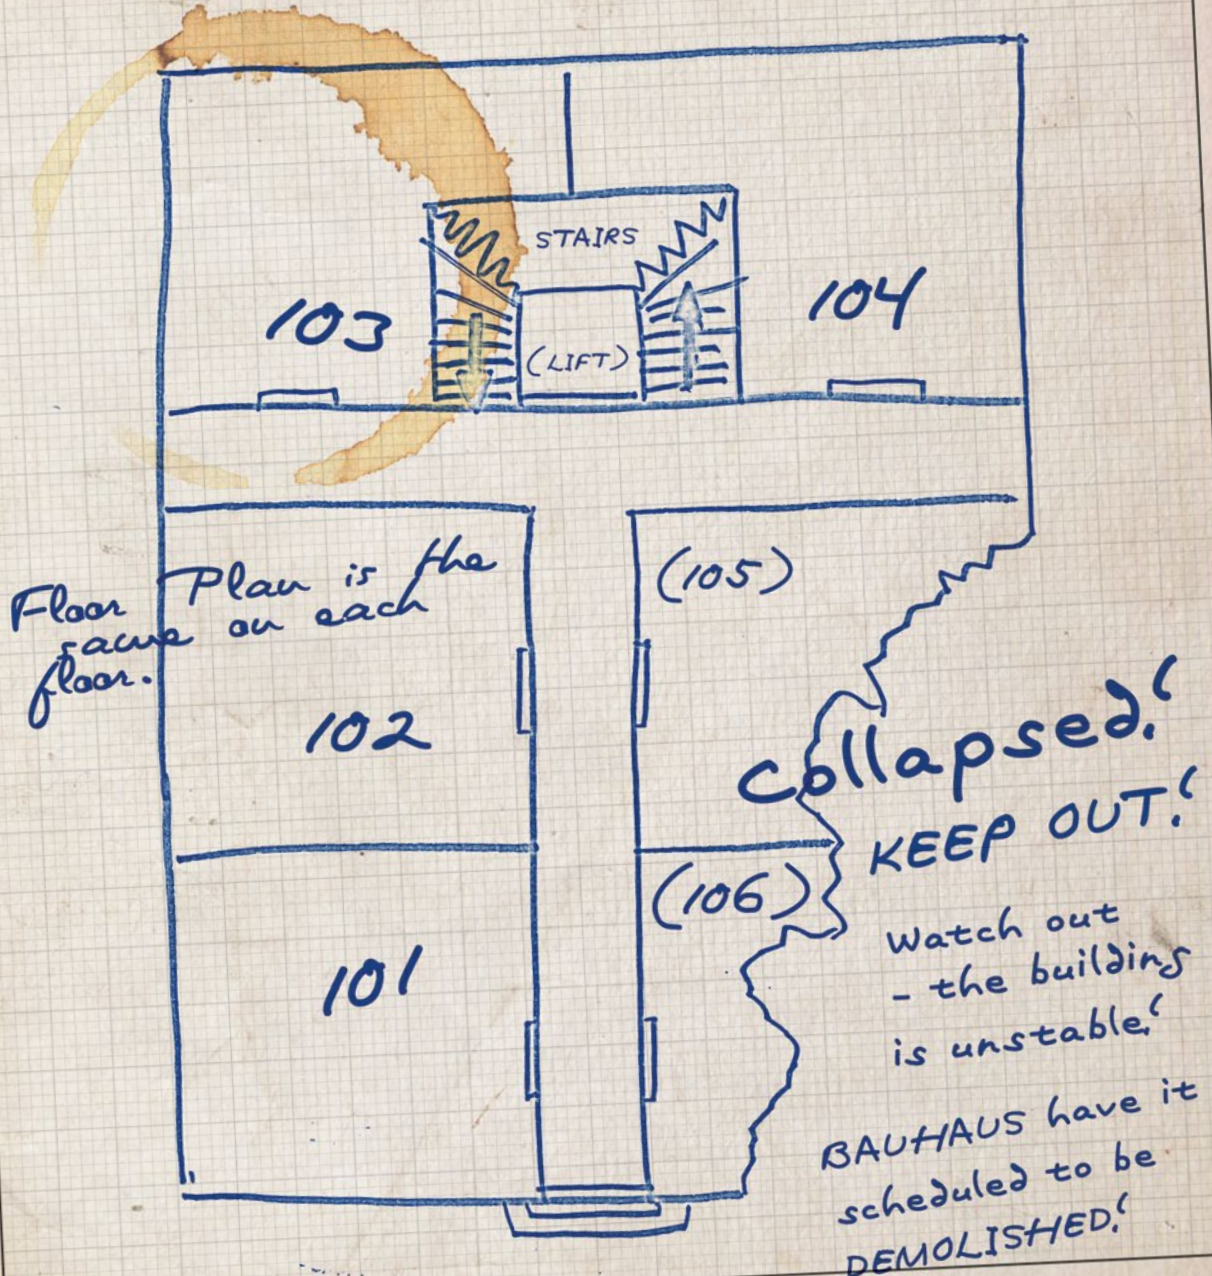 STAIRS
103
104
(LIFT)
Floor Plan is the
same on each
floor.
(105)
102
Collapsed!
KEEP OUT!
(106)
101
Watch out
- the building
is unstable!
BAUHAUS have it
scheduled to be
DEMOLISHED!